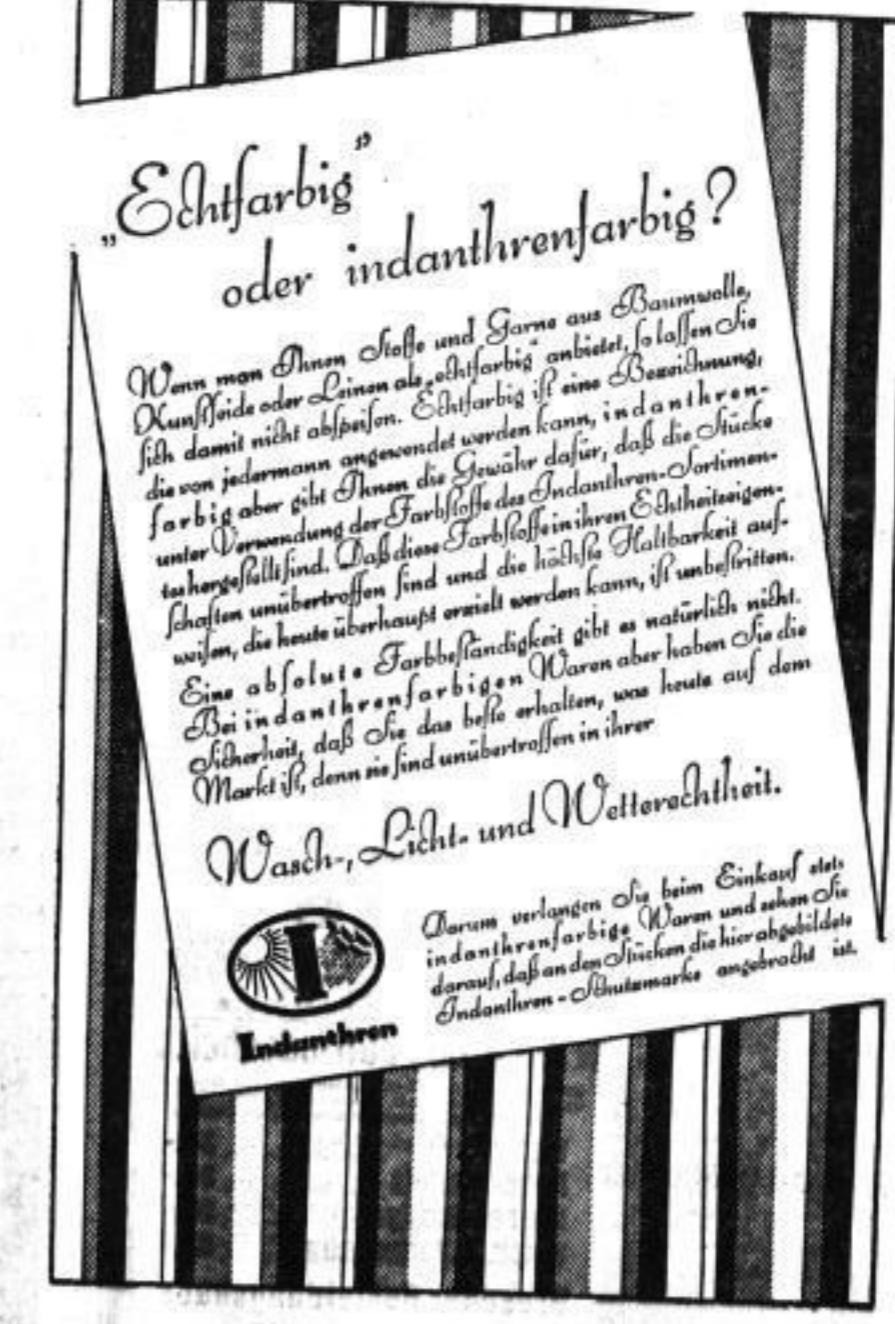 „Echtfarbig“
oder indanthrenfarbig?
Wenn man Ihnen Stoffe und Garne aus Baumwolle,
Kunstseide oder Leinen als „echtfarbig“ anbietet, so lassen Sie
sich damit nicht abspeisen. Echtfarbig ist eine Bezeichnung,
die von jedermann angewendet werden kann, indanthren-
farbig aber gibt Ihnen die Gewähr dafür, daß die Stücke
unter Verwendung der Farbstoffe des Indanthren-Sortimen-
tes hergestellt sind. Daß diese Farbstoffe in ihren Echtheitseigen-
schaften unübertroffen sind und die höchste Haltbarkeit auf-
weisen, die heute überhaupt erzielt werden kann, ist unbestritten.
Eine absolute Farbbeständigkeit gibt es natürlich nicht.
Bei indanthrenfarbigen Waren aber haben Sie die
Sicherheit, daß Sie das beste erhalten, was heute auf dem
Markt ist, denn sie sind unübertroffen in ihrer
Wasch-, Licht- und Wetterechtheit.
Darum verlangen Sie beim Einkauf stets
indanthrenfarbige Waren und sehen Sie
darauf, daß an den Stücken die hier abgebildete
Indanthren-Schutzmarke angebracht ist.
I
Indanthren